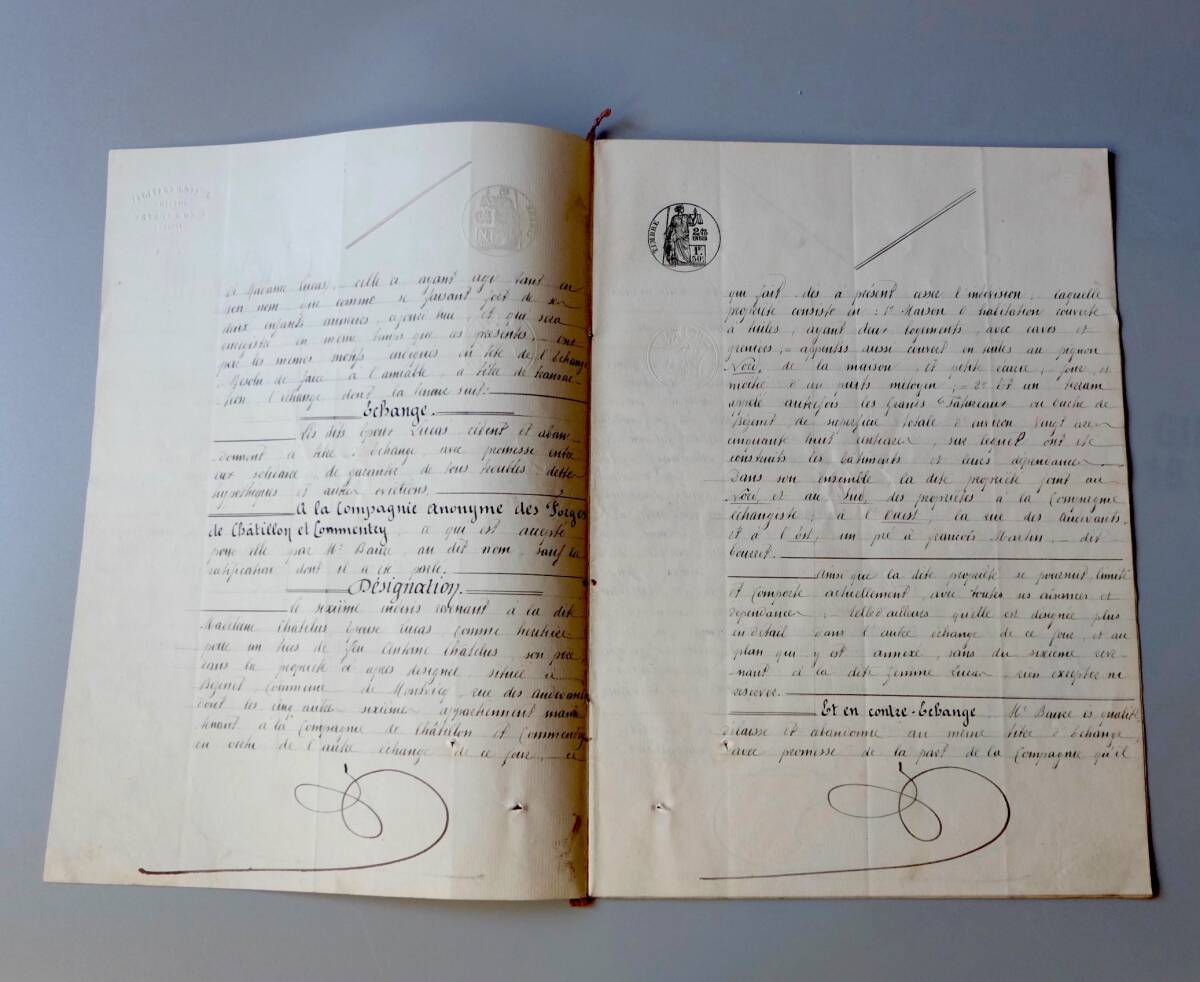 de Madame Lucas, celle ci ayant agi tant en
son nom que comme se faisant fort de ses
deux enfants mineurs, ajourd'hui, et qui sera
enregistré en même temps que ces présentes, ont
pour les mêmes motifs indiqués en tête de l'échange
résolu de faire à l'amiable, à titre de transac-
tion l'échange dont la teneur suit:
Echange.
Les dits époux Lucas cèdent et aban-
donnent à titre d'échange, avec promesse entre
eux solidaire de garantie de tous troubles dettes
hypothèques et autres évictions,
A la Compagnie Anonyme des Forges
de Châtillon et Commentry, ce qui est accepté
pour elle par Mr Baure, au dit nom, sauf la
ratification dont il a été parlé.
Désignation.
Le sixième indivis revenant à la dite
Madame Chatelus épouse Lucas comme héritière
pour un tiers de feu Antoine Chatelus, son père,
dans la propriété ci après désignée, située à
Bézenet, commune de Montvicq, rue des
dont les cinq autres sixièmes appartiennent mainte-
nant à la Compagnie de Châtillon et Commentry
en vertu de l'autre échange de ce jour, ce
TIMBRE
2/10 EN SUS
1F 50c
qui fait dès à présent cesser l'indivision; laquelle
propriété consiste en: 1° Maison d'habitation couverte
à tuiles, ayant deux logements, avec caves et
greniers; = appentis aussi couvert en tuiles au pignon
Nord, de la maison, et petite écurie, four, et
moitié d'un puits mitoyen; = 2° Et un terrain
appelé autrefois les Grands ou Ouche de
Bézenet de superficie totale d'environ vingt ares
cinquante huit centiares, sur lequel ont été
construits les bâtiments et leurs dépendances.
Dans son ensemble la dite propriété joint au
Nord, et au Sud, des propriétés à la Compagnie
échangiste; à l'Ouest, la rue des
et à l'Est, un pré à François Martin, dit
bourret.
Ainsi que la dite propriété se poursuit limite
et comporte actuellement, avec toutes ses aisances et
dépendances, telle d'ailleurs qu'elle est désignée plus
en détail dans l'autre échange de ce jour, et au
plan qui y est annexé, sans du sixième reve-
nant à la dite femme Lucas, rien excepter ni
réserver.
Et en contre-Echange Mr Baure ès qualité
délaisse et abandonne au même titre d'échange,
avec promesse de la part de la Compagnie qu'il